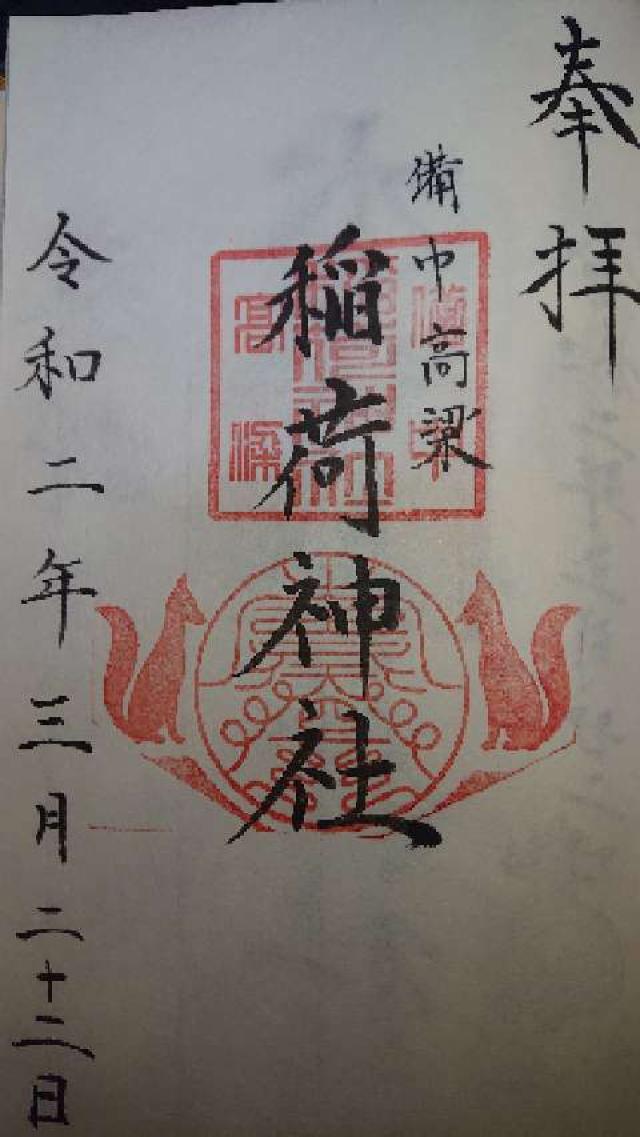 奉拝
備中高梁
稲荷神社
令和二年三月二十二日